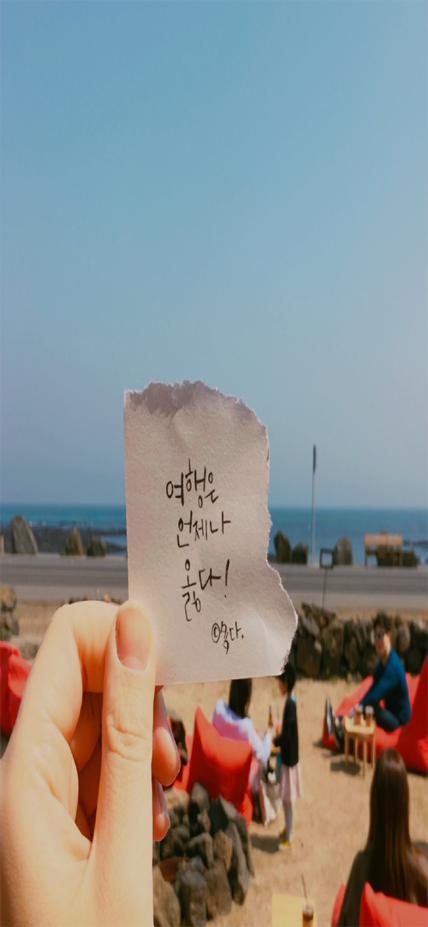 여행은
언제나
옳다!